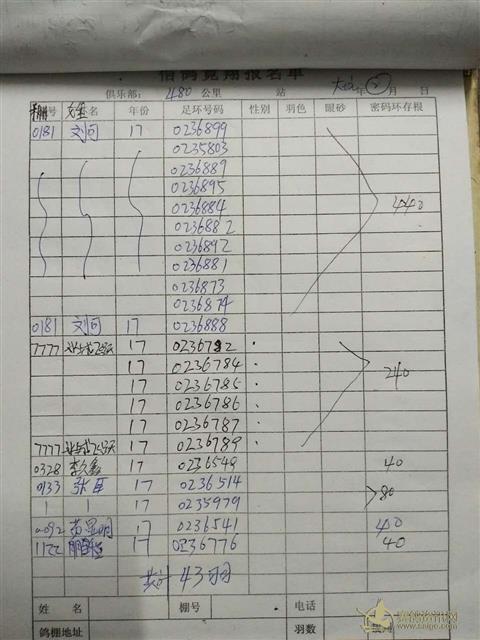 信鸽竞翔报名单
俱乐部： 480 公里 站 年 月 日
棚号 姓名 年份 足环号码 性别 羽色 眼砂 密码环存根
0181 17 0236899
0235803
0236889
0236895
0236884 440
0236882
0236892
0236881
0236873
0236874
0181 17 0236888
7777 17 0236782
17 0236784
17 0236785 240
17 0236786
17 0236787
7777 17 0236789
0328 17 0236549 40
0133 17 0236514
0235979 80
0092 17 0236541 40
1122 17 0236776 40
共计 43羽
姓名 棚号 电话
鸽棚地址 羽数